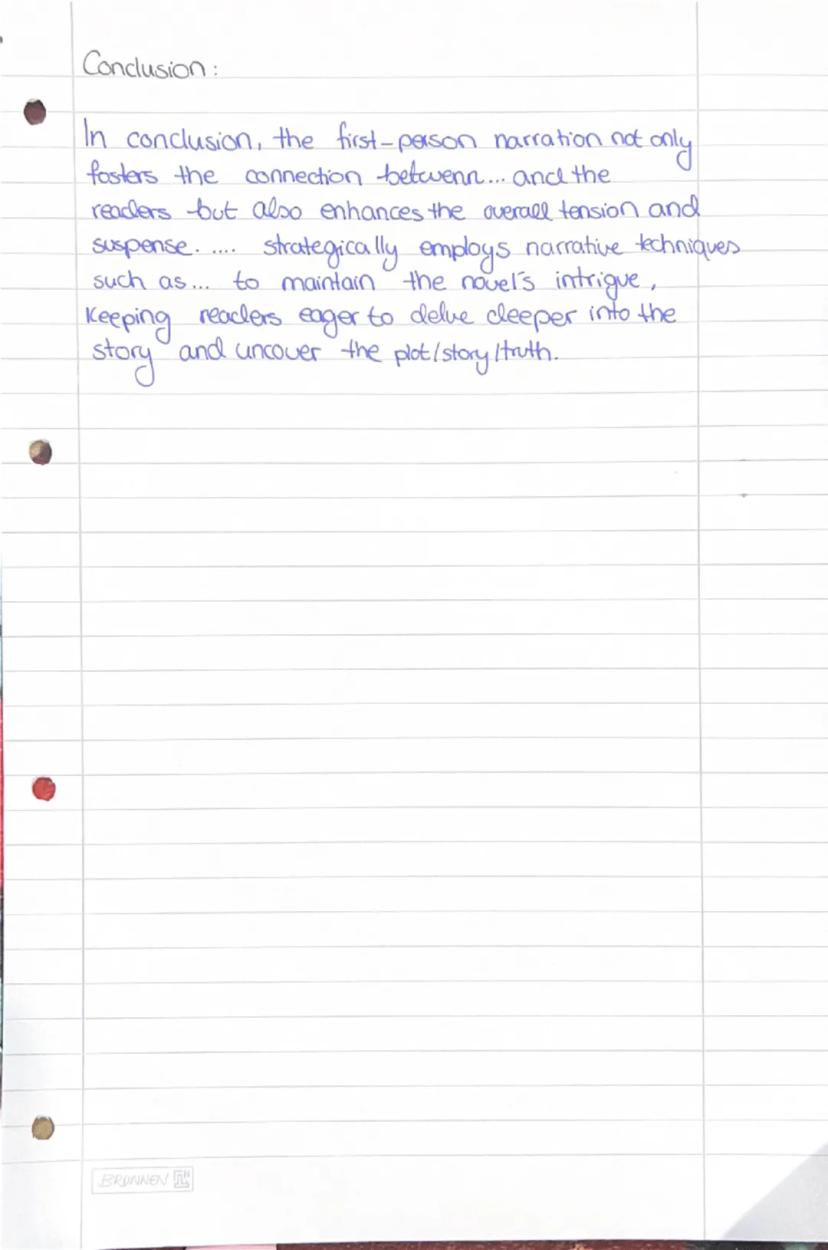 Conclusion:
In conclusion, the first-person narration not only
fosters the connection betwenn... and the
readers but also enhances the overall tension and
suspense. .... strategically employs narrative techniques
such as... to maintain the novel's intrigue,
Keeping readers eager to delve deeper into the
story and uncover the plot/story/truth.
BRUNNEN